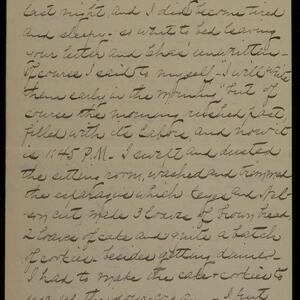 last night, and I did become tired
and sleepy - so went to bed leaving
your letter and Chas' unwritten -
Of course I said to myself, "I will write
them early in the morning" but of
course the morning rushed past,
filled with its labors and now it
is 1:45 P.M. - I swept and dusted
the sitting room, washed and trimmed
the asparagus which and Nel-
son cut, made 3 loaves of brown bread
2 loaves of cake and quite a batch
of cookies - besides getting dinner -
I had to make the cake & cookies to
use up the - I put